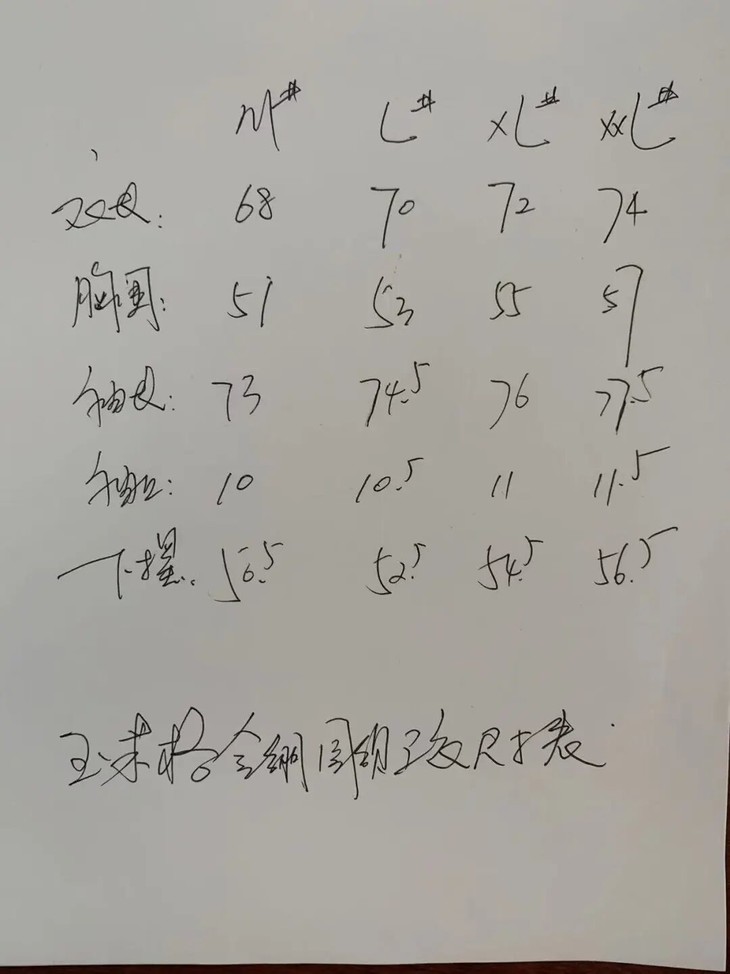 M# L# XL# XXL#
衣长: 68 70 72 74
胸围: 51 53 55 57
袖长: 73 74.5 76 77.5
袖口: 10 10.5 11 11.5
下摆. 50.5 52.5 54.5 56.5
尺寸表